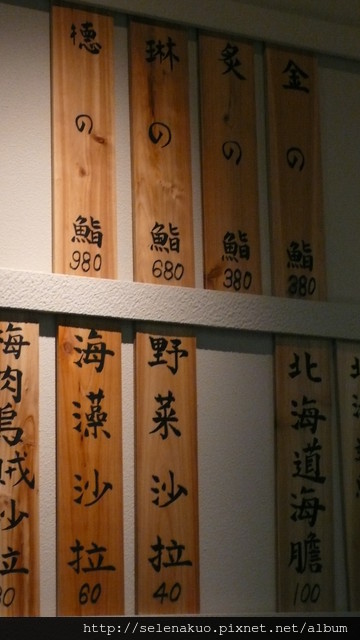 金の鮨
380
炙の鮨
380
琳の鮨
680
德の鮨
980
北海道海膽
100
野菜沙拉
40
海藻沙拉
60
梅肉烏賊沙拉
http://selenakuo.pixnet.net/album